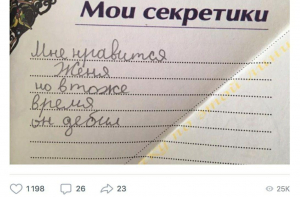 Мои секретики
Мне нравится
Женя
но в тоже
время
он дебил
1198 26 23 25K